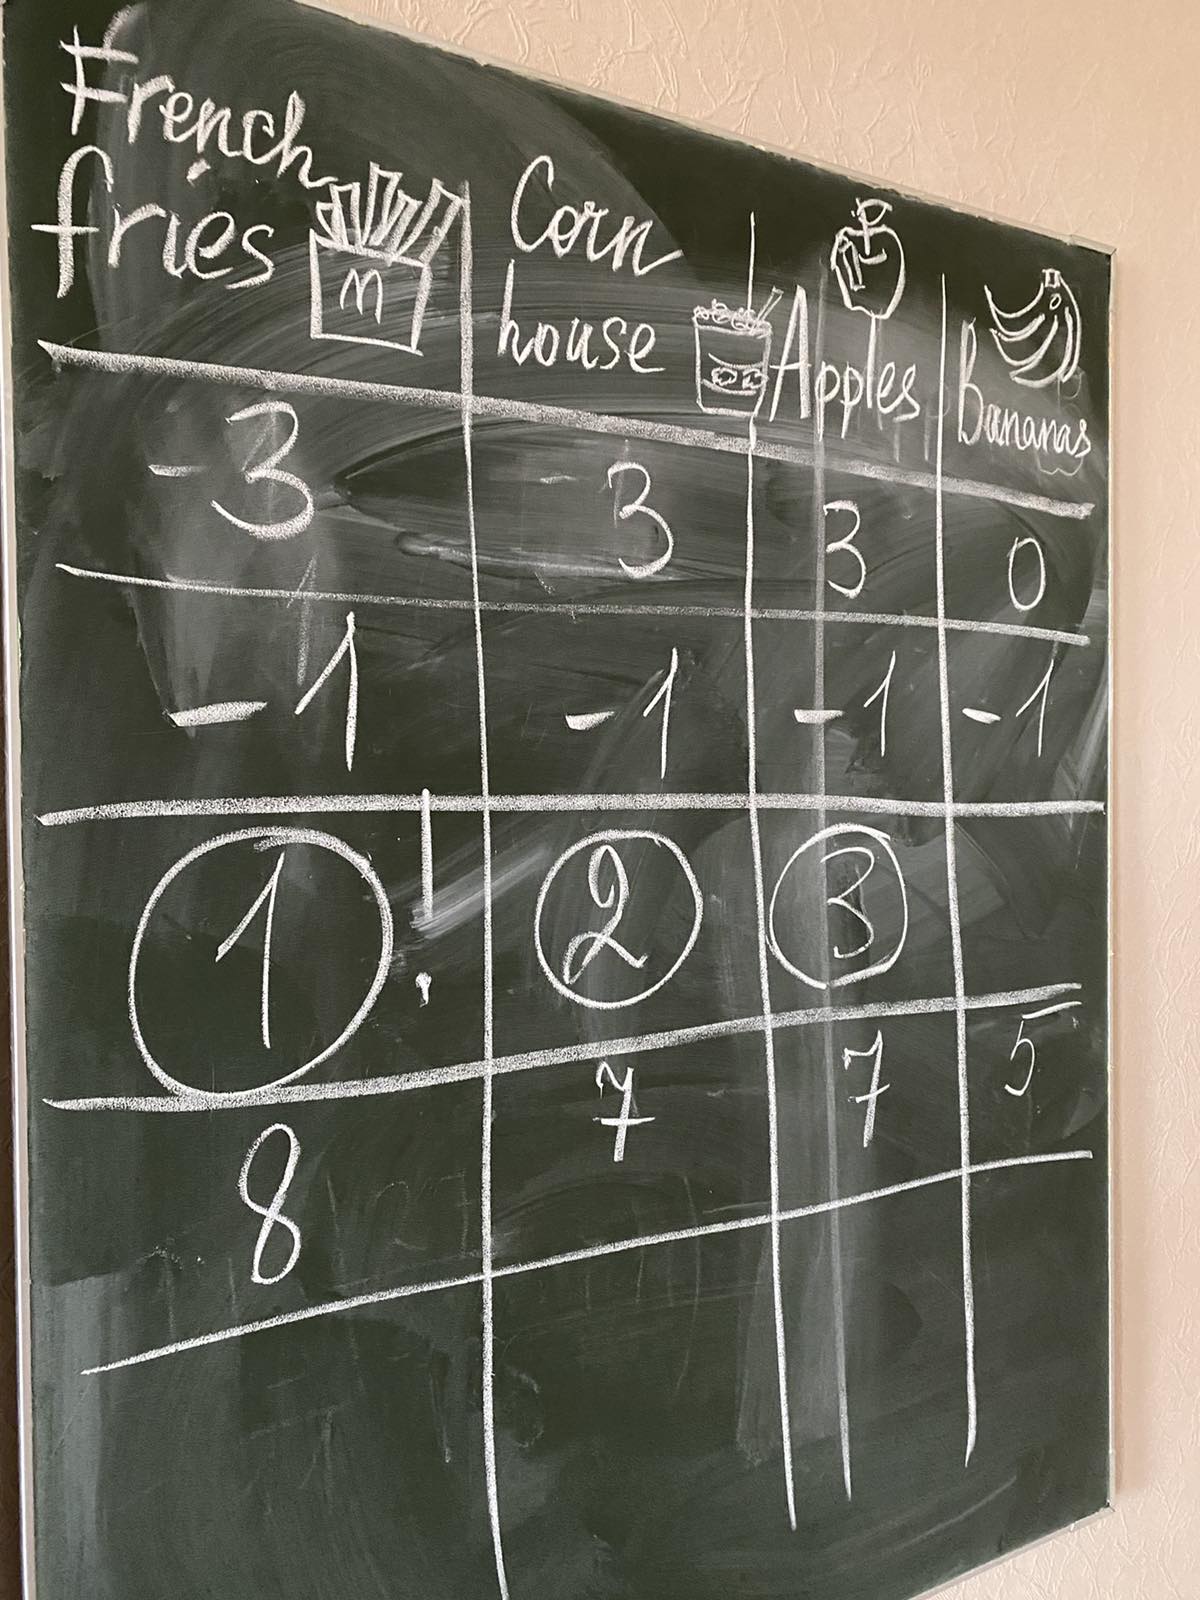 French
fries
M
Corn
house
Apples
Bananas
-3 -3 3 0
-1 -1 -1 -1
1 ! 2 3
8 7 7 5